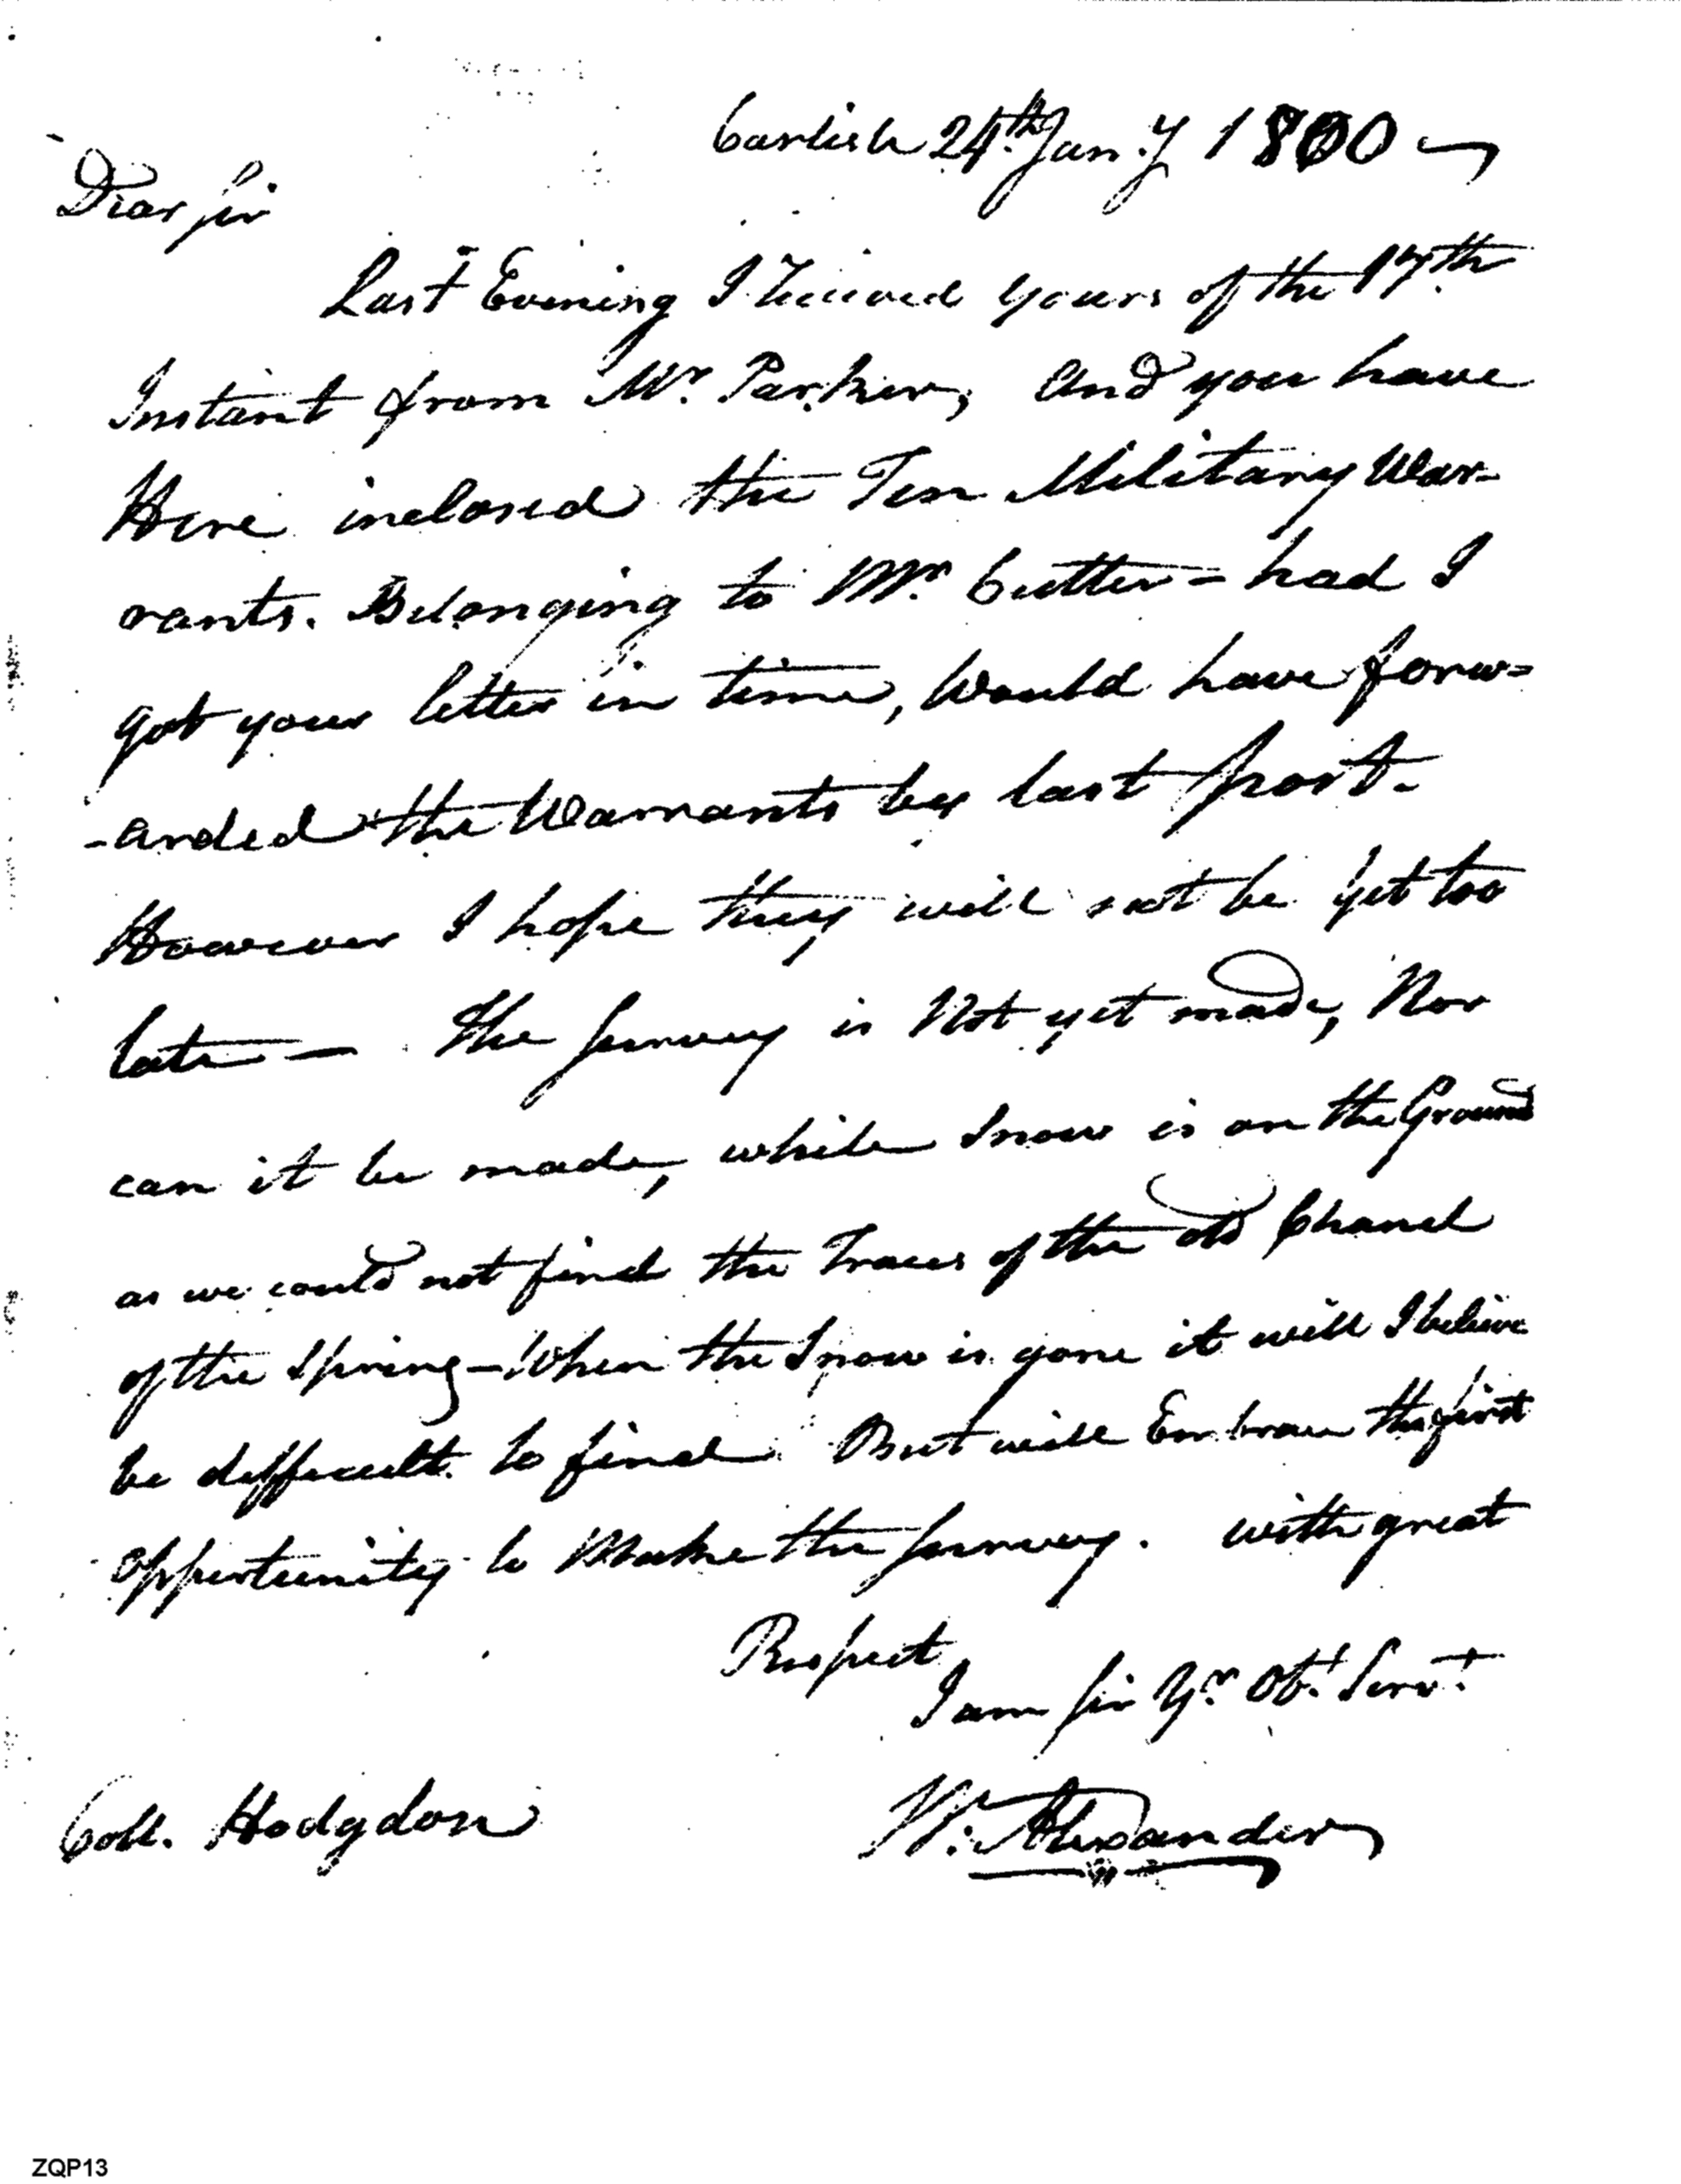 Carlisle 24th Jan.y 1800
Dear Sir
Last Evening I Received yours of the 17th
Instant from Mr. Parker, and you have
Here inclosed the Ten Military War-
rants. Belonging to Mr. Cutter = had I
got your letter in time, Would have forw=
-arded the Warrants by last post.
However I hope they will not be yet too
late — The survey is Not yet made, Nor
can it be made, while Snow is on the Ground
as we could not find the Traces of the old Chanel
of the Spring — When the Snow is gone it will I believe
be difficult to find But will Embrace the first
opportunity to Make the survey. with great
Respect
I am Sir Yr. Obt. Servt.
Coll. Hodgdon
W. Alexander
ZQP13